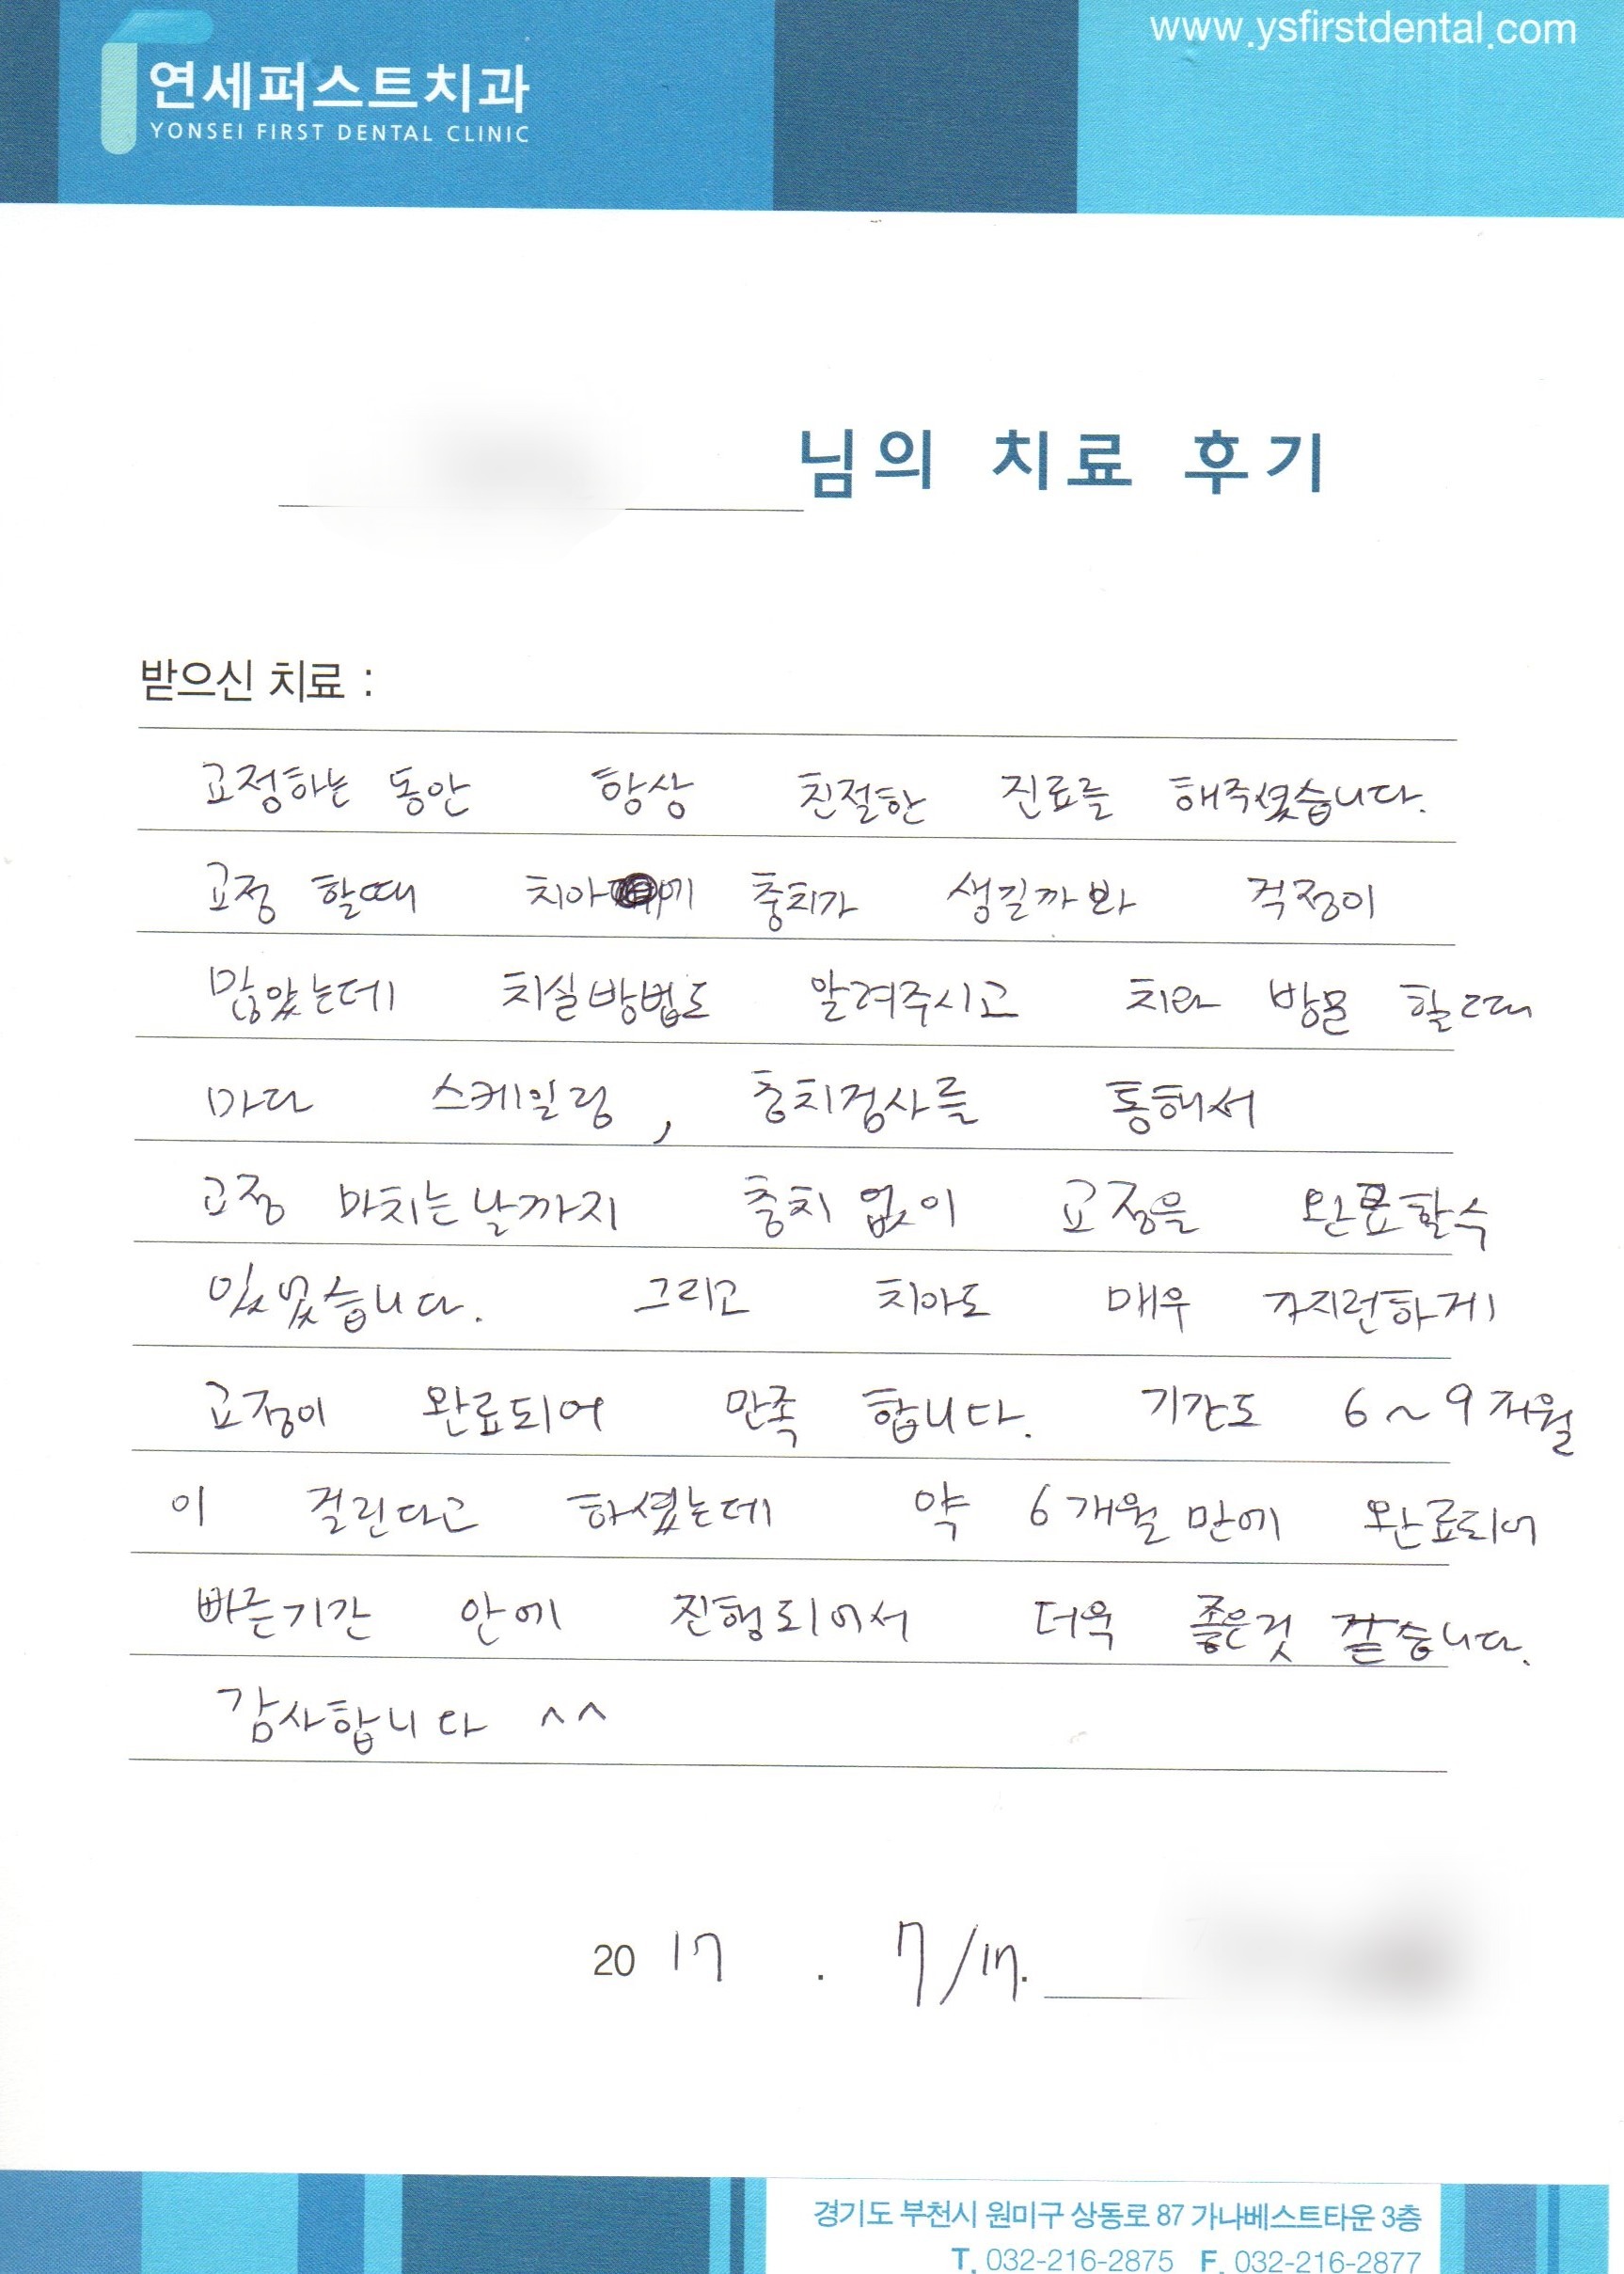 www.ysfirstdental.com
연세퍼스트치과
YONSEI FIRST DENTAL CLINIC
님의 치료 후기
받으신 치료 :
교정하는 동안 항상 친절한 진료를 해주셨습니다.
교정 할때 치아에 충치가 생길까봐 걱정이
많았는데 치실방법도 알려주시고 치과 방문 할때
마다 스케일링, 충치검사를 통해서
교정 마치는날까지 충치 없이 교정을 완료할수
있었습니다. 그리고 치아도 매우 가지런하게
교정이 완료되어 만족 합니다. 기간도 6~9개월
이 걸린다고 하셨는데 약 6개월만에 완료되어
빠른기간 안에 진행되어서 더욱 좋은것 같습니다.
감사합니다 ^^
2017 . 7/17.
경기도 부천시 원미구 상동로 87 가나베스트타운 3층
T. 032-216-2875 F. 032-216-2877